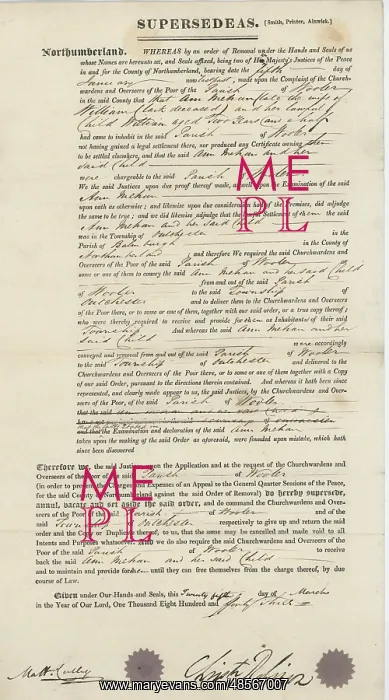 SUPERSEDEAS. [Smith, Printer, Alnwick.]
Northumberland. WHEREAS by an order of Removal under the Hands and Seals of us
whose Names are hereunto set, and Seals affixed, being two of Her Majesty's Justices of the Peace
in and for the County of Northumberland, bearing date the fifth day of
January made upon the Complaint of the Church-
wardens and Overseers of the Poor of the Parish of Wooler
in the said County that Ann Mehan (late the wife of
William deceased) and her lawful
Child William aged two Years and a half
had come to inhabit in the said Parish of Wooler
not having gained a legal settlement there, nor produced any Certificate owning them
to be settled elsewhere, and that the said Ann Mehan and her
said Child
were chargeable to the said Parish of Wooler
We the said Justices upon due proof thereof made, as well upon the Examination of the said
Ann Mehan
upon oath as otherwise; and likewise upon due consideration of the Premises, did adjudge
the same to be true; and we did likewise adjudge that the lawful Settlement of them the said
Ann Mehan and her said Child
was in the Township of Outchester in the
Parish of Bamburgh in the County of
Northumberland and therefore We required the said Churchwardens and
Overseers of the Poor of the said Parish of Wooler or
some or one of them to convey the said Ann Mehan and her said Child
from and out of the said Parish
of Wooler to the said Township of
Outchester and to deliver them to the Churchwardens and Overseers
of the Poor there, or to some or one of them, together with our said order, or a true copy thereof;
who were thereby required to receive and provide for them as Inhabitants of their said
Township And whereas the said Ann Mehan and her
said Child were accordingly
conveyed and removed from and out of the said Parish of Wooler
to the said Township of Outchester and delivered to the
Churchwardens and Overseers of the Poor there, or to some or one of them together with a Copy
of our said Order, pursuant to the directions therein contained. And whereas it hath been since
represented, and clearly made appear to us, the said Justices, by the Churchwardens and Over-
seers of the Poor, of the said Parish of Wooler
that the said
that the Examination and declaration of the said Ann Mehan
taken upon the making of the said Order as aforesaid, were founded upon mistake, which hath
been since discovered
Therefore we the said Justices upon the Application and at the request of the Churchwardens and
Overseers of the Poor of the said Parish of Wooler
(in order to prevent the Charges and Expenses of an Appeal to the General Quarter Sessions of the Peace,
for the said County of Northumberland against the said Order of Removal) do hereby supersede,
annul, vacate and set aside the said order, and do command the Churchwardens and Over-
seers of the Poor of the said Parish of Wooler and of the
said Township of Outchester respectively to give up and return the said
order and the Copy or Duplicate thereof, to us, that the same may be cancelled and made void to all
Intents and Purposes whatsoever. And we do also require the said Churchwardens and Overseers of the
Poor of the said Parish of Wooler to receive
back the said Ann Mehan and her said Child
and to maintain and provide for them until they can free themselves from the charge thereof, by due
course of Law.
Given under Our Hands and Seals, this Twenty fifth day of March
in the Year of Our Lord, One Thousand Eight Hundred and forty three
Matt. Culley
ME
PL
ME
PL
www.maryevans.com/48567007